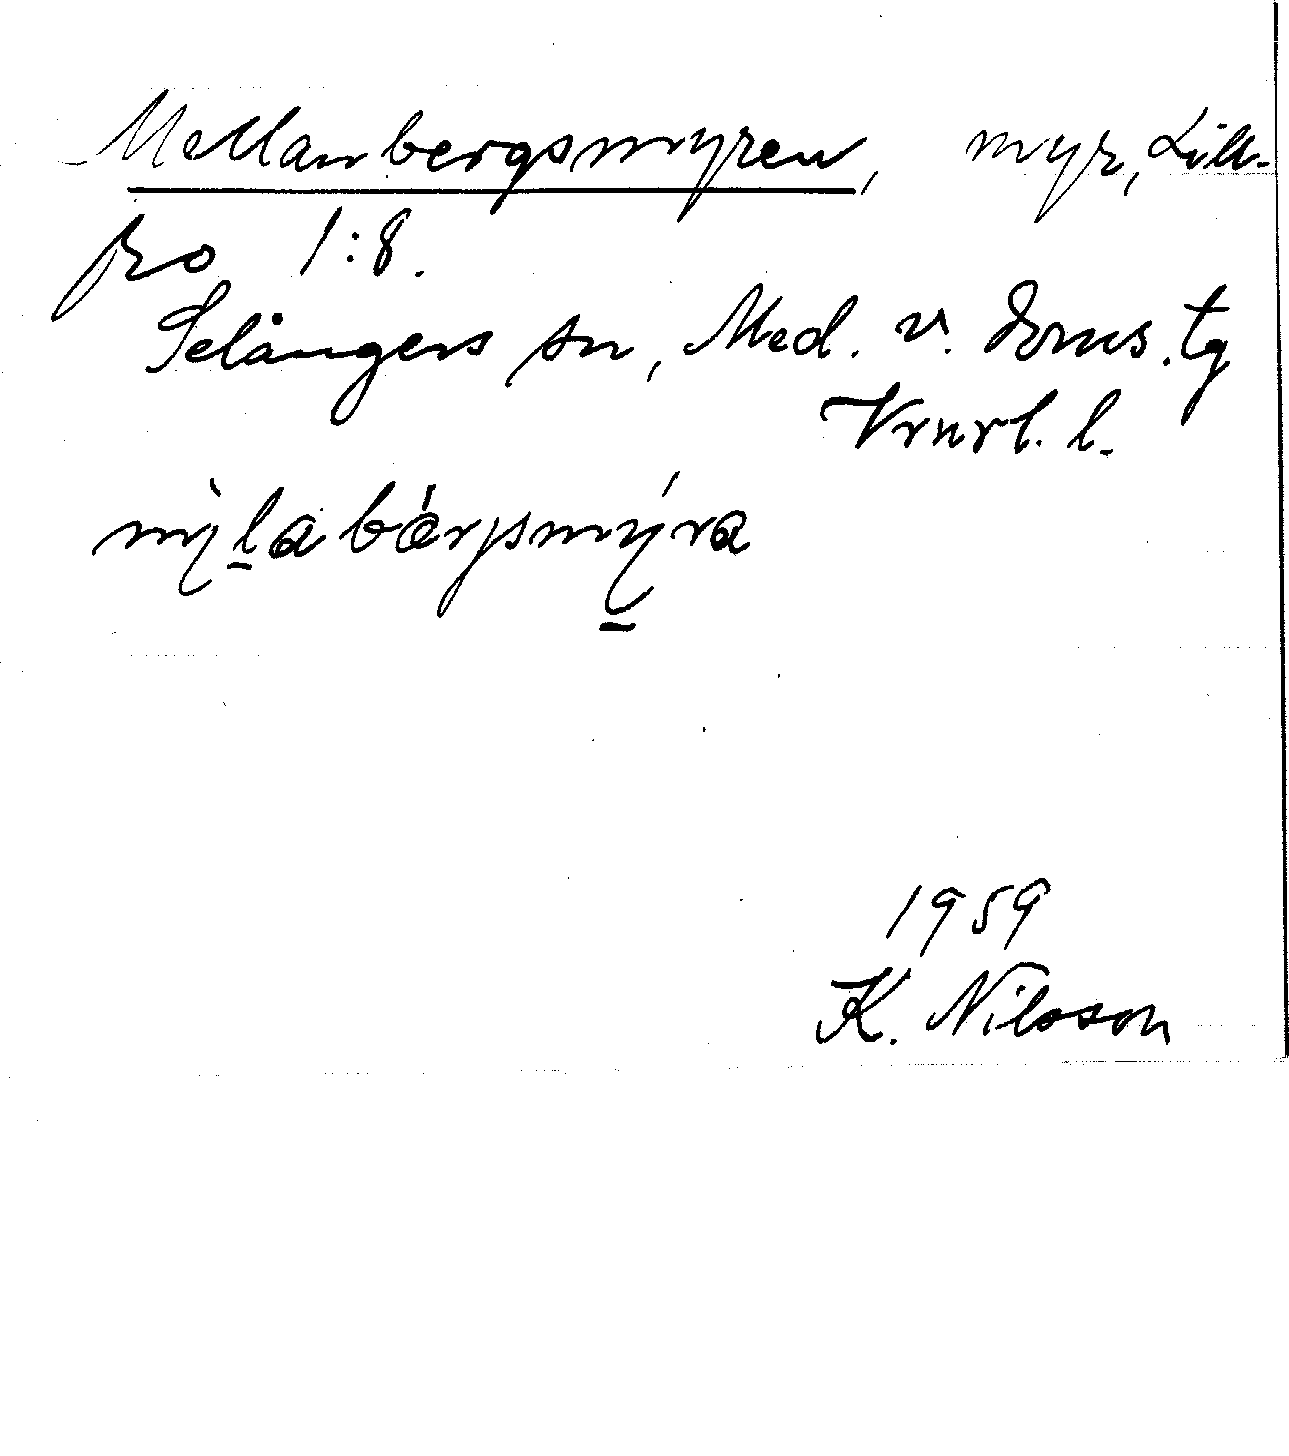 Mellanbergsmyren, myr, Lill-
fro 1:8.
Selångers sn, Med. v. Doms. tg
Vrurl. l.
mỳl̲abǽrjsmý̲ra
1959
K. Nilsson